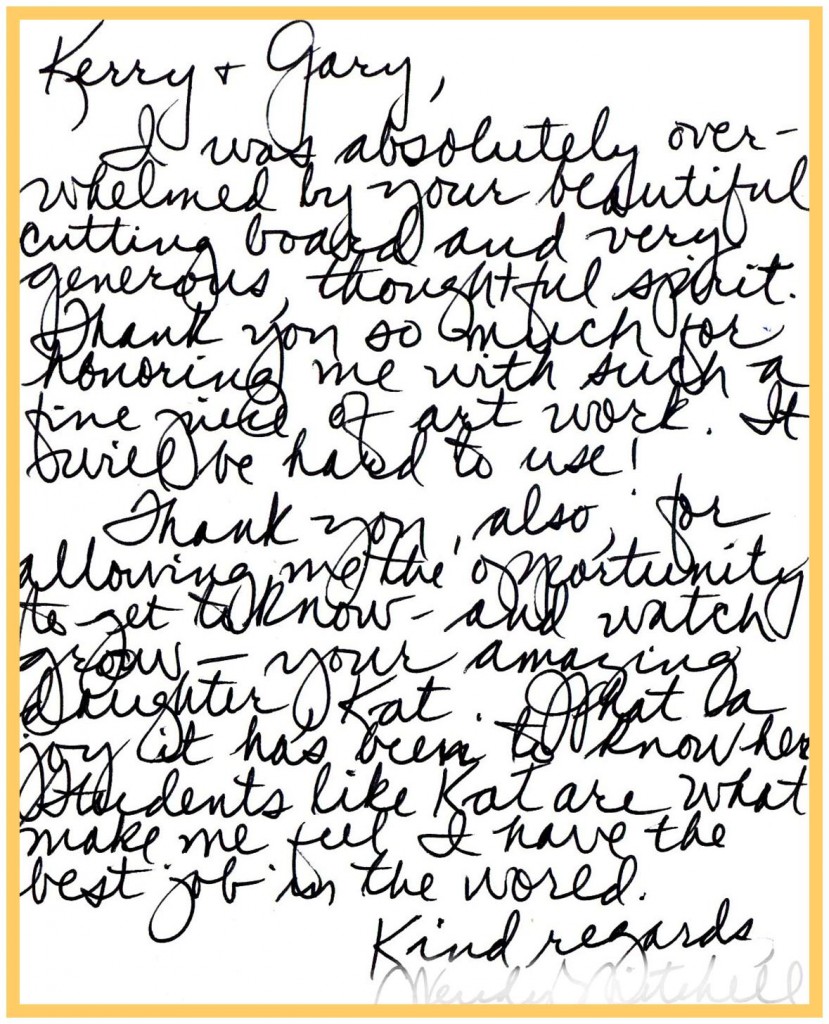 Kerry + Gary,
I was absolutely over-
whelmed by your beautiful
cutting board and very
generous, thoughtful spirit.
Thank you so much for
honoring me with such a
fine piece of art work. It
will be hard to use!
Thank you, also, for
allowing me the opportunity
to get to know - and watch
grow - your amazing
daughter, Kat. What a
joy it has been to know her
Students like Kat are what
make me feel I have the
best job in the world.
Kind regards,
Wendy Mitchell